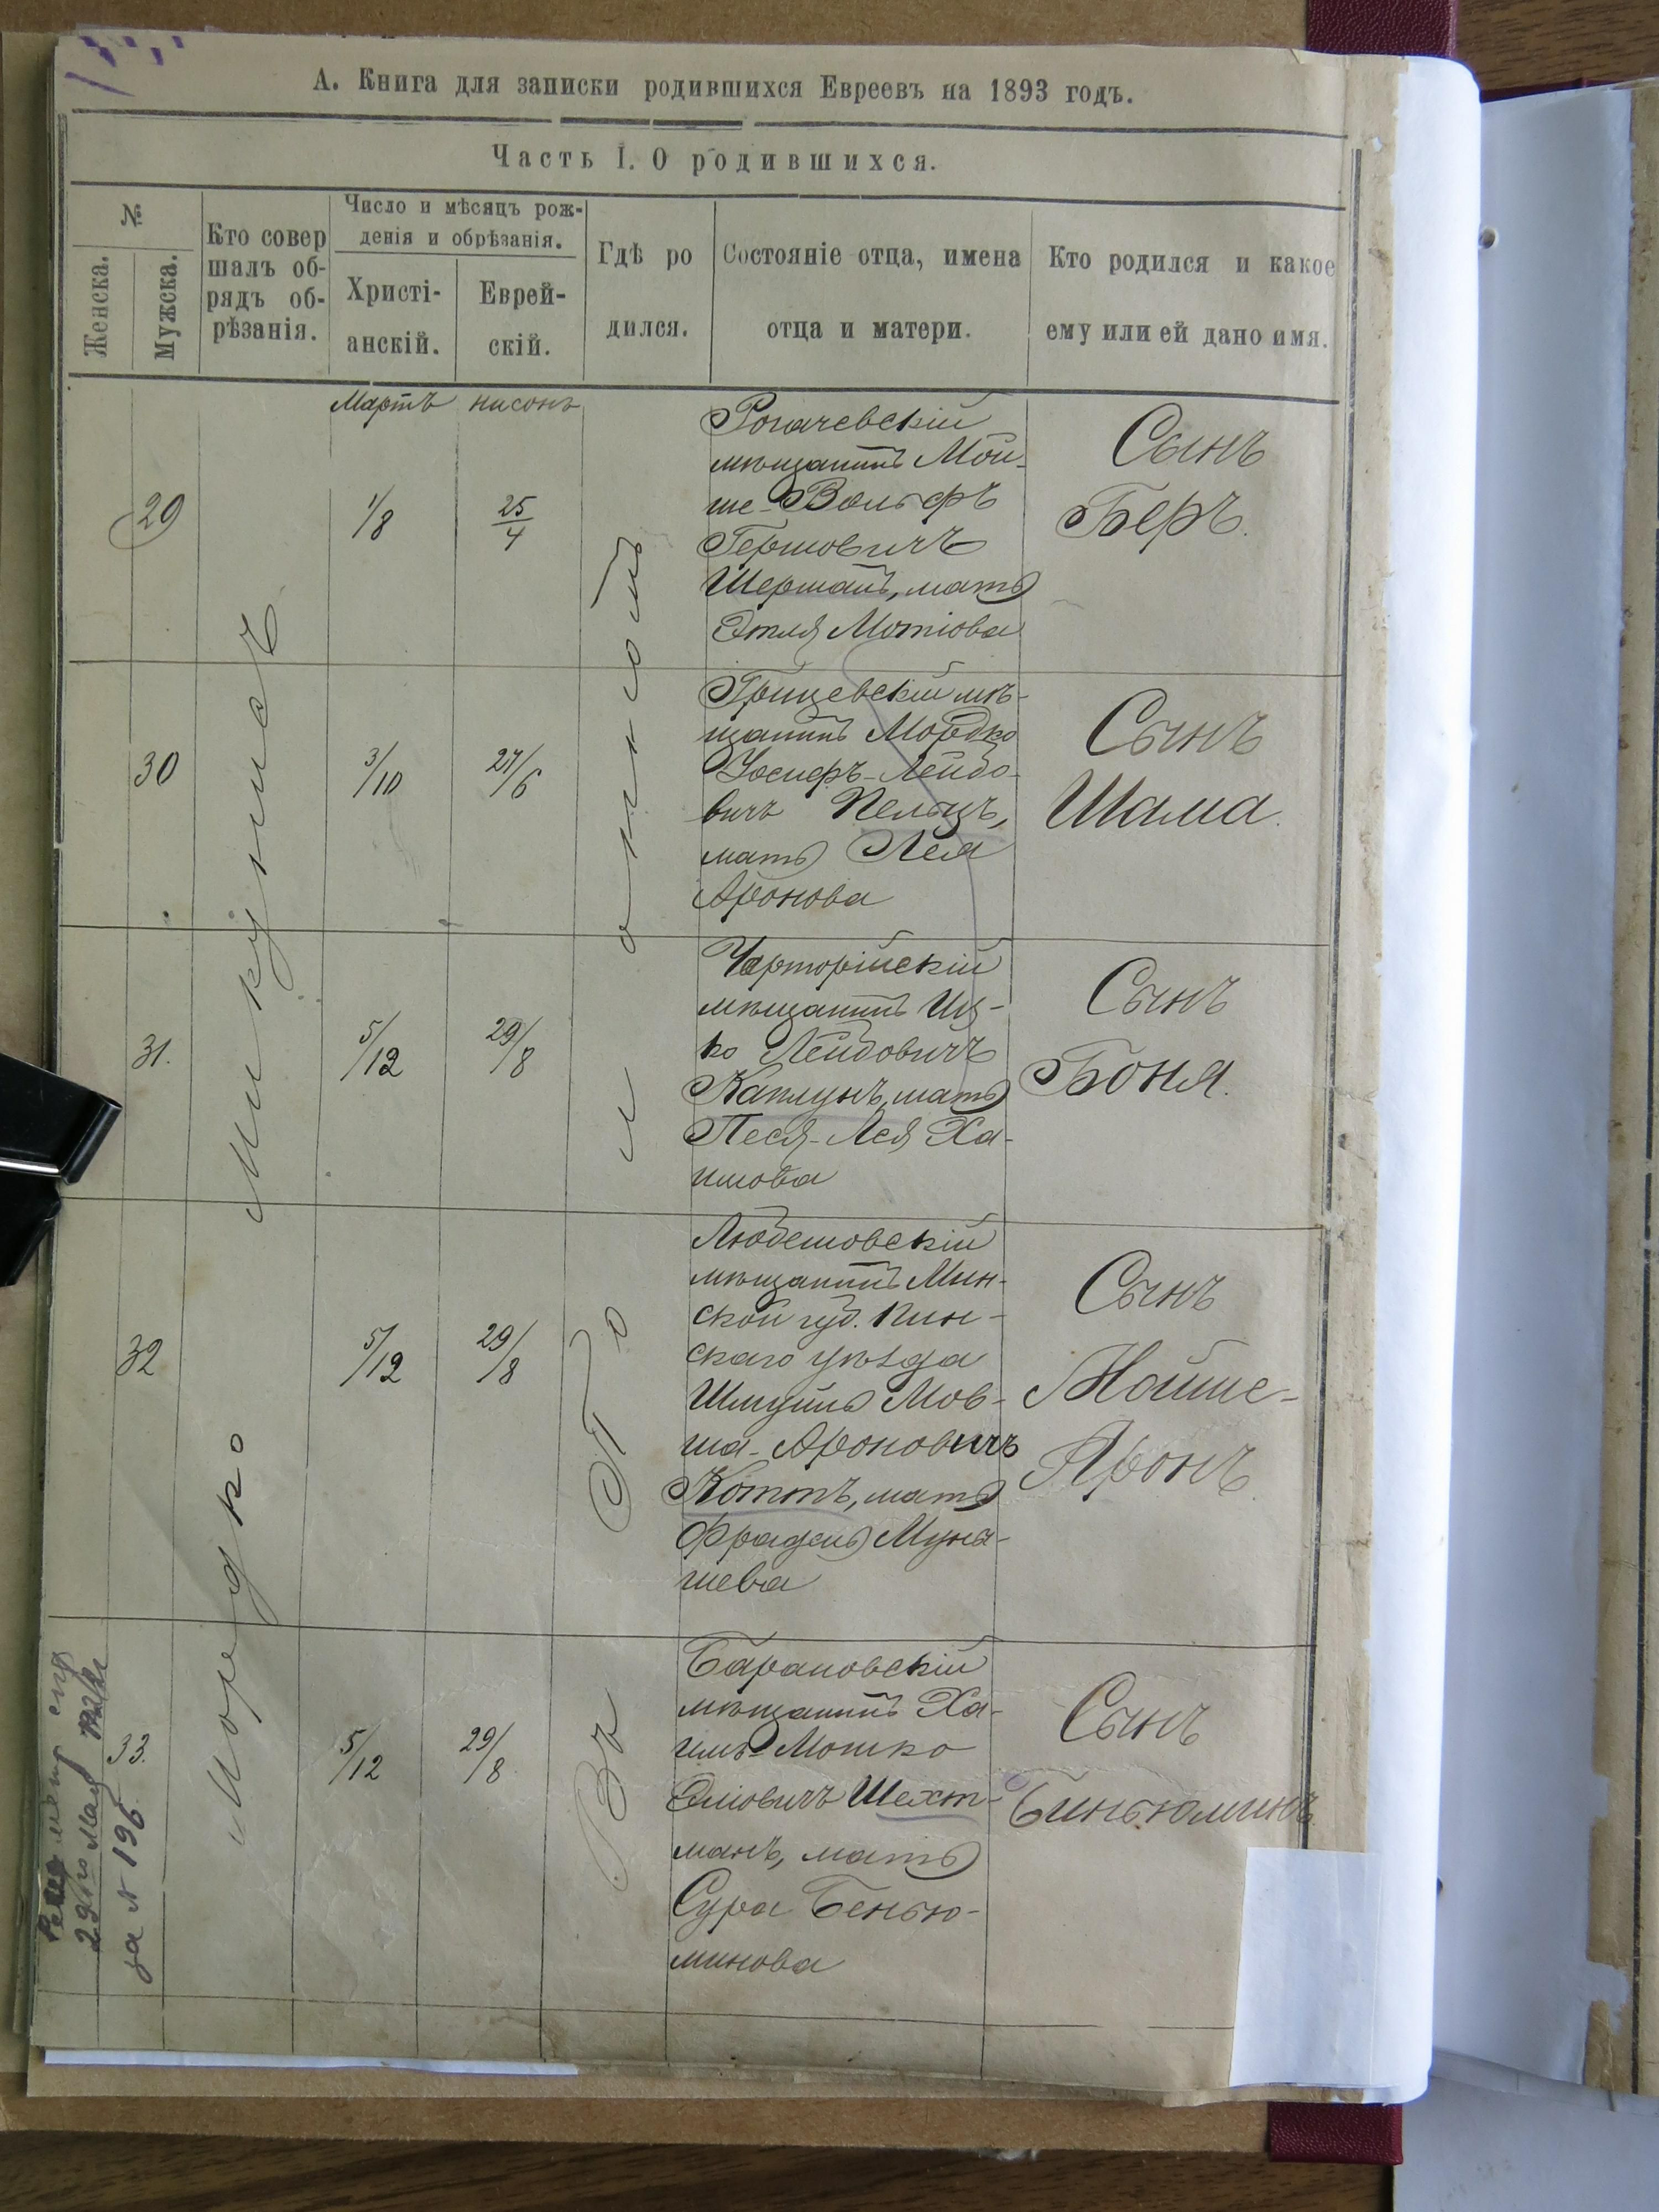 А. Книга для записки родившихся Евреевъ на 1893 годъ.
Часть I. О родившихся.
№
Женска.
Мужска.
Кто совер
шалъ об-
рядъ об-
рѣзанія.
Число и мѣсяцъ рож-
денія и обрѣзанія.
Христі-
анскій.
Еврей-
скій.
Гдѣ ро
дился.
Состояніе отца, имена
отца и матери.
Кто родился и какое
ему или ей дано имя.
Мартъ
нисонъ
Мордко
Въ
29
1/8
25/4
Рогачевскій
мѣщанинъ Мой-
ше-Вольфъ
Гершовичъ
Шерманъ, мать
Этля Мотіова
Сынъ
Беръ.
30
3/10
27/6
Грицевскій мѣ-
щанинъ Мордко
Іосифъ-Лейбо-
вичъ Пельцъ,
мать Лея
Аронова
Сынъ
Шама.
31.
5/12
29/8
Чарторійскій
мѣщанинъ Иц-
ко Лейбовичъ
Каплунъ, мать
Песя-Лея Ха-
имова
Сынъ
Боня.
32
5/12
29/8
Любешовскій
мѣщанинъ Мин-
ской губ. Пин-
скаго уѣзда
Шмуйль Мов-
ша-Ароновичъ
Коттъ, мать
Фрадель Муна-
шева
Сынъ
Мойше-
Аронъ.
33.
5/12
29/8
Барановскій
мѣщанинъ Ха-
имъ-Мошко
Эліовичъ Шехт-
манъ, мать
Сура Бенью-
минова
Сынъ
Биньюминъ
29го Мая
за № 196